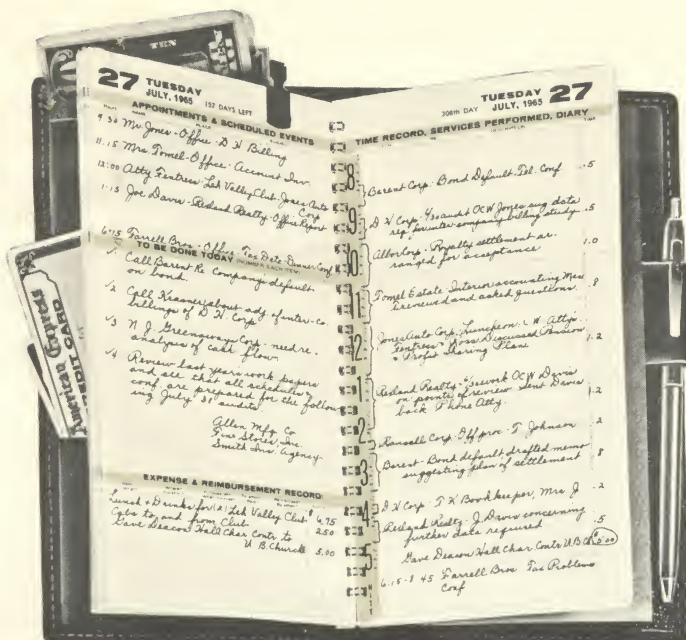 TEN
27 TUESDAY
JULY, 1965 157 DAYS LEFT
APPOINTMENTS & SCHEDULED EVENTS
9 30 Mr. Jones - Office - D W Billing
11.15 Mrs Tomel - Office - Account Inv
12:00 Atty Fentress - Leh Valley Club - Jones Auto
Corp
1:15 Joe Davis - Redland Realty - Office Report
6:15 Farrell Bros - Office - Tax Data - Dinner Conf
TO BE DONE TODAY (NUMBER EACH ITEM)
√1 Call Barent Re Company default
on bond.
√2 Call about adj of inter-co.
billings of D W Corp.
√3 N. J. Greenaways Corp - need re.
analysis of cash flow
√4 Review last years work papers
and see that all schedules &
conf. are prepared for the follow
ing July 31 audits
Allen Mfg Co
Fine Stores, Inc.
Smith Ins. Agency
EXPENSE & REIMBURSEMENT RECORD
Lunch + Drinks for (2) Leh Valley Club $ 6.75
Cabs to and from Club 2.50
Gave Deacon Hall Char Contr to
U. B. Church 5.00
American Express
CREDIT CARD
TUESDAY 27
208th DAY JULY, 1965
TIME RECORD, SERVICES PERFORMED, DIARY
8
Barent Corp - Bond Default - Tel. Conf .5
9
D W Corp - audit OCW Jones aug data
rep. for inter-company billing study .5
10
Albor Corp - Royalty settlement ar-
ranged for acceptance 1.0
11
Tomel Estate - Interim accounting Mrs
reviewed and asked questions .8
12
Jones Auto Corp. Luncheon: L W. Attys
Fentress & Ross Discussed Pension
& Profit Sharing Plans 1.2
1
Redland Realty - OCW Davis
on points of review Sent Davis
back Phone Atty. 1.2
2
Russell Corp. Off proc - T. Johnson .2
3
Barent - Bond default drafted memo
suggesting plan of settlement .8
4
D W Corp - T W Bookkeeper, Mrs. J .2
Redland Realty - J. Davis concerning
further data required .5
5
Gave Deacon Hall Char Contr U B Ch $5.00
6.15-8 45 Farrell Bros Tax Problems
Conf